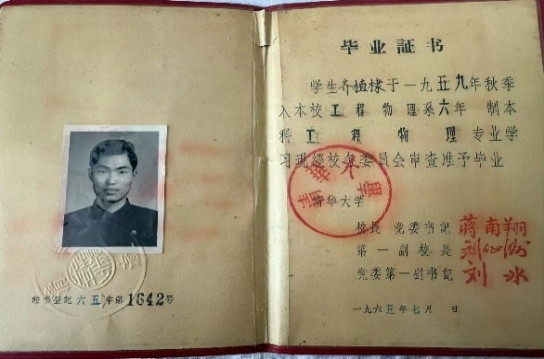 证书登记六五字第1642号
毕业証书
学生齐植棣于一九五九年秋季
入本校工程物理系六年制本
科工程物理专业学
习现经校务委员会审查准予毕业
清华大学
校长 党委书记 蒋南翔
第一副校长 刘仙洲
党委第一副书记 刘冰
一九六五年七月 日